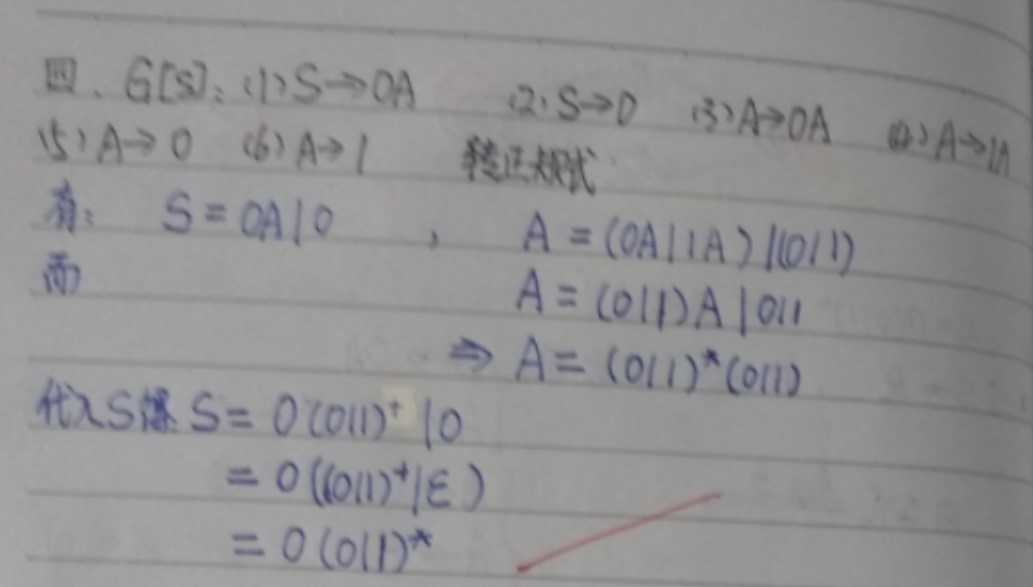 四. G[S]: (1) S→0A (2) S→0 (3) A→0A (4) A→1A
(5) A→0 (6) A→1 转正规式
有: S=0A|0 , A=(0A|1A)|(0|1)
而 A=(0|1)A|0|1
⇒ A=(0|1)*(0|1)
代入S得 S=0(0|1)⁺|0
=0((0|1)⁺|ε)
=0(0|1)*